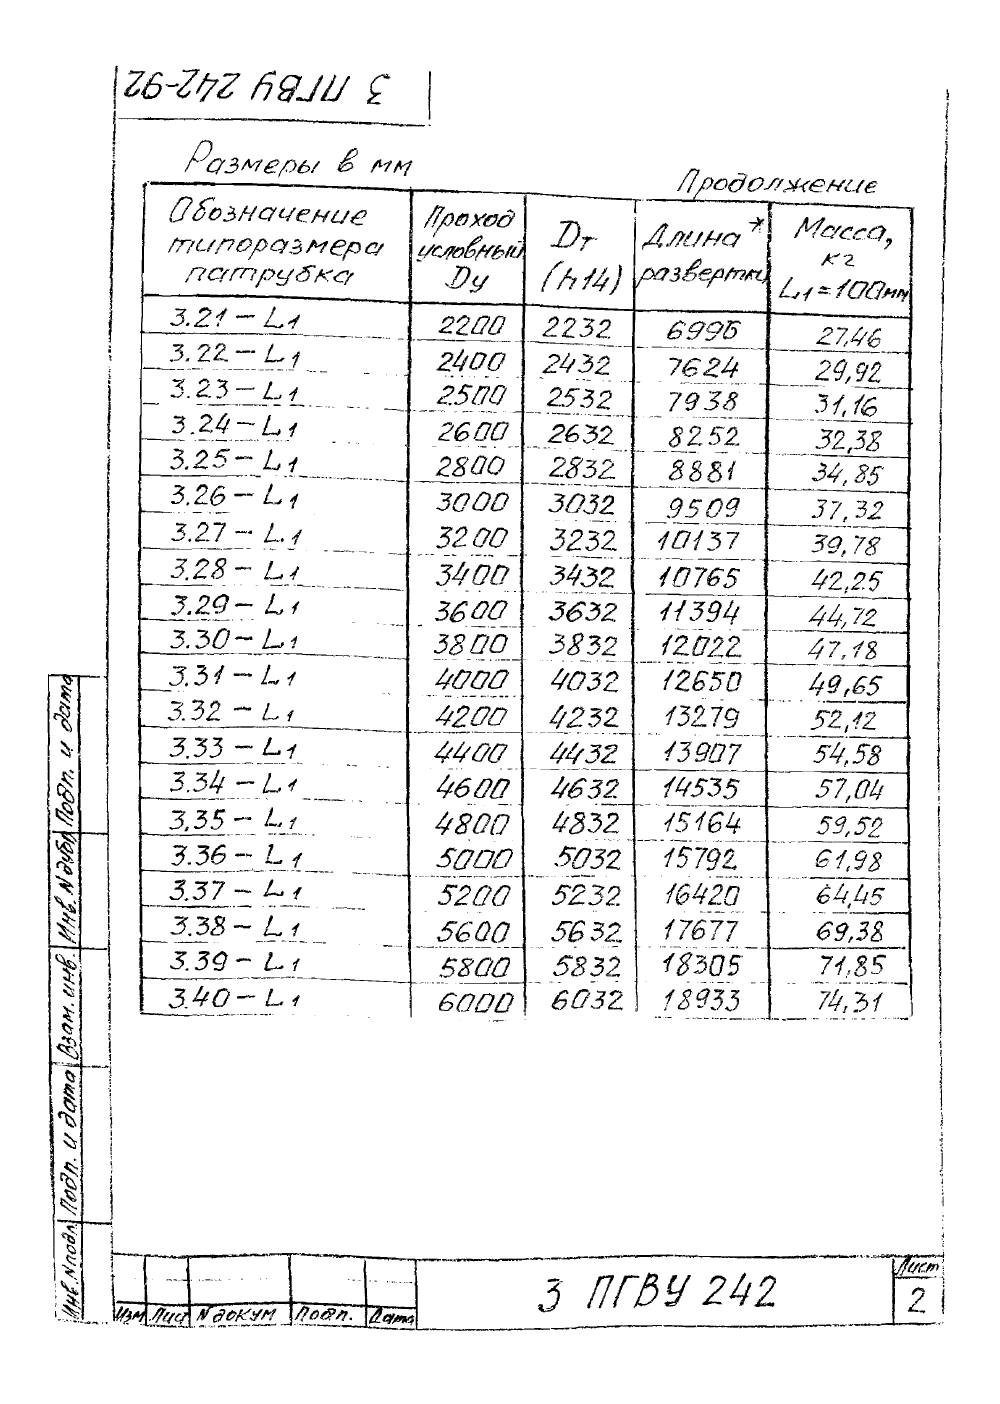 3 ПГВУ 242-92
Размеры в мм
Продолжение
Обозначение типоразмера патрубка | Проход условный Dy | Dт (h14) | Длина* развертки | Масса, кг L1=100мм
3.21-L1 2200 2232 6996 27,46
3.22-L1 2400 2432 7624 29,92
3.23-L1 2500 2532 7938 31,16
3.24-L1 2600 2632 8252 32,38
3.25-L1 2800 2832 8881 34,85
3.26-L1 3000 3032 9509 37,32
3.27-L1 3200 3232 10137 39,78
3.28-L1 3400 3432 10765 42,25
3.29-L1 3600 3632 11394 44,72
3.30-L1 3800 3832 12022 47,18
3.31-L1 4000 4032 12650 49,65
3.32-L1 4200 4232 13279 52,12
3.33-L1 4400 4432 13907 54,58
3.34-L1 4600 4632 14535 57,04
3.35-L1 4800 4832 15164 59,52
3.36-L1 5000 5032 15792 61,98
3.37-L1 5200 5232 16420 64,45
3.38-L1 5600 5632 17677 69,38
3.39-L1 5800 5832 18305 71,85
3.40-L1 6000 6032 18933 74,31
Инв. N подл. Подп. и дата Взам. инв. Инв. N дубл. Подп. и дата
Изм Лист N докум Подп. Дата
3 ПГВУ 242
Лист
2